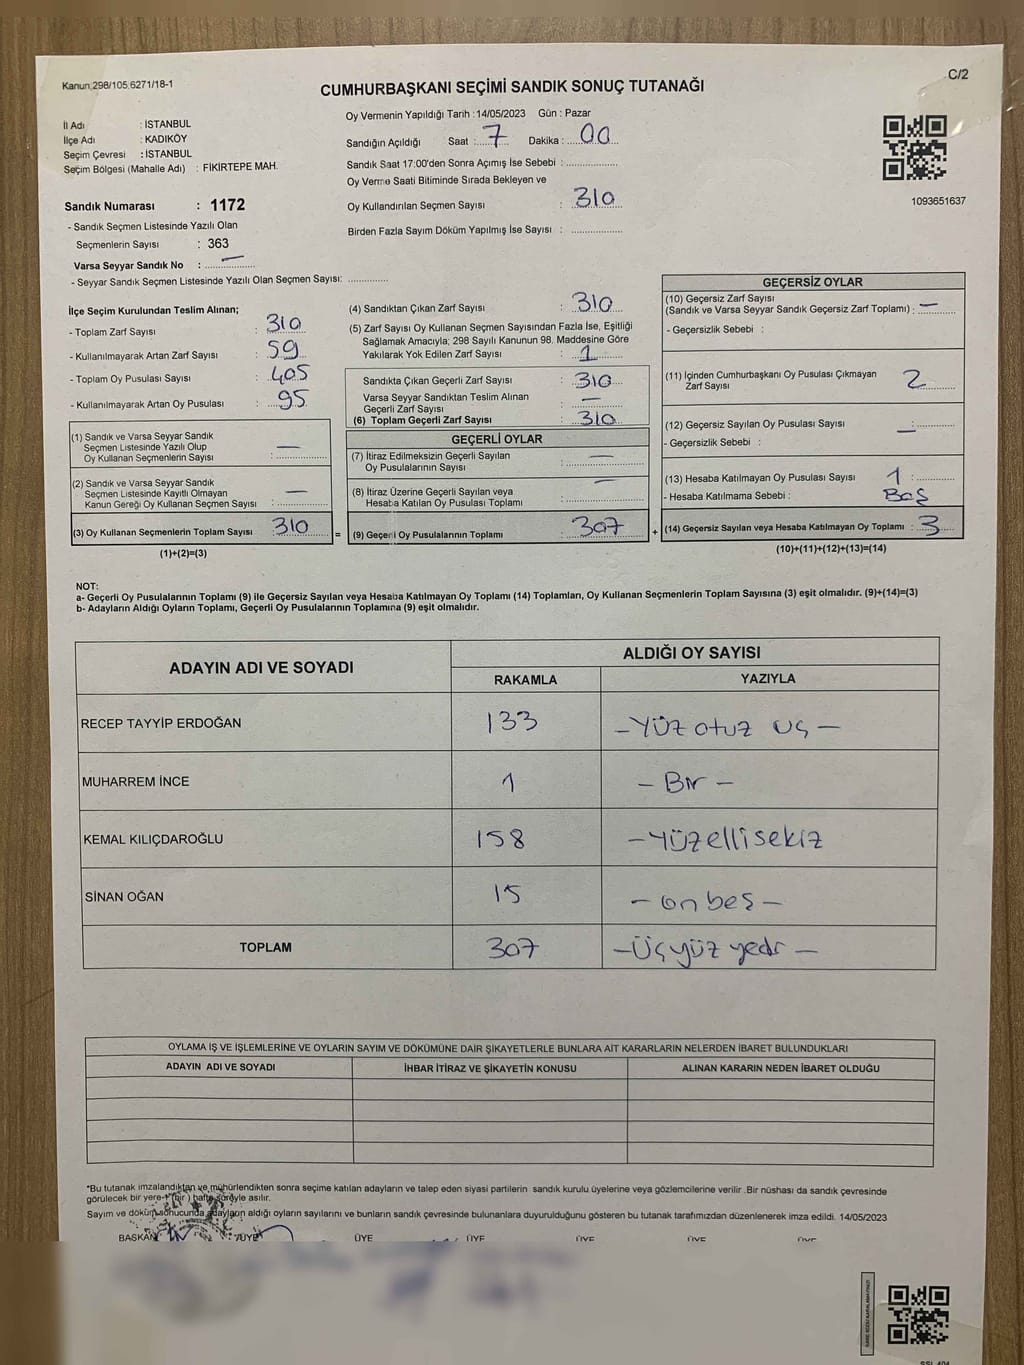 Kanun;298/105;6271/18-1
C/2
CUMHURBAŞKANI SEÇİMİ SANDIK SONUÇ TUTANAĞI
İl Adı : İSTANBUL
İlçe Adı : KADIKÖY
Seçim Çevresi : İSTANBUL
Seçim Bölgesi (Mahalle Adı) : FİKİRTEPE MAH.
Sandık Numarası : 1172
- Sandık Seçmen Listesinde Yazılı Olan
Seçmenlerin Sayısı : 363
Varsa Seyyar Sandık No : —
- Seyyar Sandık Seçmen Listesinde Yazılı Olan Seçmen Sayısı:
Oy Vermenin Yapıldığı Tarih : 14/05/2023 Gün : Pazar
Sandığın Açıldığı Saat : 7 Dakika : 00
Sandık Saat 17:00'den Sonra Açımış İse Sebebi :
Oy Verme Saati Bitiminde Sırada Bekleyen ve
Oy Kullandırılan Seçmen Sayısı : 310
Birden Fazla Sayım Döküm Yapılmış İse Sayısı :
1093651637
İlçe Seçim Kurulundan Teslim Alınan;
- Toplam Zarf Sayısı : 310
- Kullanılmayarak Artan Zarf Sayısı : 59
- Toplam Oy Pusulası Sayısı : 405
- Kullanılmayarak Artan Oy Pusulası : 95
(1) Sandık ve Varsa Seyyar Sandık
Seçmen Listesinde Yazılı Olup
Oy Kullanan Seçmenlerin Sayısı : —
(2) Sandık ve Varsa Seyyar Sandık
Seçmen Listesinde Kayıtlı Olmayan
Kanun Gereği Oy Kullanan Seçmen Sayısı : —
(3) Oy Kullanan Seçmenlerin Toplam Sayısı : 310
(1)+(2)=(3)
(4) Sandıktan Çıkan Zarf Sayısı : 310
(5) Zarf Sayısı Oy Kullanan Seçmen Sayısından Fazla İse, Eşitliği
Sağlamak Amacıyla; 298 Sayılı Kanunun 98. Maddesine Göre
Yakılarak Yok Edilen Zarf Sayısı : 1
Sandıkta Çıkan Geçerli Zarf Sayısı : 310
Varsa Seyyar Sandıktan Teslim Alınan
Geçerli Zarf Sayısı : —
(6) Toplam Geçerli Zarf Sayısı : 310
GEÇERLİ OYLAR
(7) İtiraz Edilmeksizin Geçerli Sayılan
Oy Pusulalarının Sayısı : —
(8) İtiraz Üzerine Geçerli Sayılan veya
Hesaba Katılan Oy Pusulası Toplamı : —
= (9) Geçerli Oy Pusulalarının Toplamı : 307 +
GEÇERSİZ OYLAR
(10) Geçersiz Zarf Sayısı
(Sandık ve Varsa Seyyar Sandık Geçersiz Zarf Toplamı) : —
- Geçersizlik Sebebi :
(11) İçinden Cumhurbaşkanı Oy Pusulası Çıkmayan
Zarf Sayısı 2
(12) Geçersiz Sayılan Oy Pusulası Sayısı : —
- Geçersizlik Sebebi :
(13) Hesaba Katılmayan Oy Pusulası Sayısı : 1
- Hesaba Katılmama Sebebi : Boş
(14) Geçersiz Sayılan veya Hesaba Katılmayan Oy Toplamı : 3
(10)+(11)+(12)+(13)=(14)
NOT:
a- Geçerli Oy Pusulalarının Toplamı (9) ile Geçersiz Sayılan veya Hesaba Katılmayan Oy Toplamı (14) Toplamları, Oy Kullanan Seçmenlerin Toplam Sayısına (3) eşit olmalıdır. (9)+(14)=(3)
b- Adayların Aldığı Oyların Toplamı, Geçerli Oy Pusulalarının Toplamına (9) eşit olmalıdır.
ADAYIN ADI VE SOYADI
ALDIĞI OY SAYISI
RAKAMLA YAZIYLA
RECEP TAYYİP ERDOĞAN 133 - Yüz otuz üç -
MUHARREM İNCE 1 - Bir -
KEMAL KILIÇDAROĞLU 158 - Yüzellisekiz
SİNAN OĞAN 15 - on beş -
TOPLAM 307 - Üçyüz yedi -
OYLAMA İŞ VE İŞLEMLERİNE VE OYLARIN SAYIM VE DÖKÜMÜNE DAİR ŞİKAYETLERLE BUNLARA AİT KARARLARIN NELERDEN İBARET BULUNDUKLARI
ADAYIN ADI VE SOYADI İHBAR İTİRAZ VE ŞİKAYETİN KONUSU ALINAN KARARIN NEDEN İBARET OLDUĞU
*Bu tutanak imzalandıktan ve mühürlendikten sonra seçime katılan adayların ve talep eden siyasi partilerin sandık kurulu üyelerine veya gözlemcilerine verilir .Bir nüshası da sandık çevresinde
görülecek bir yere 1 (bir ) hafta süreyle asılır.
Sayım ve döküm sonucunda adayların aldığı oyların sayılarını ve bunların sandık çevresinde bulunanlara duyurulduğunu gösteren bu tutanak tarafımızdan düzenlenerek imza edildi. 14/05/2023
BAŞKAN ÜYE ÜYE ÜYE ÜYE ÜYE ÜYE